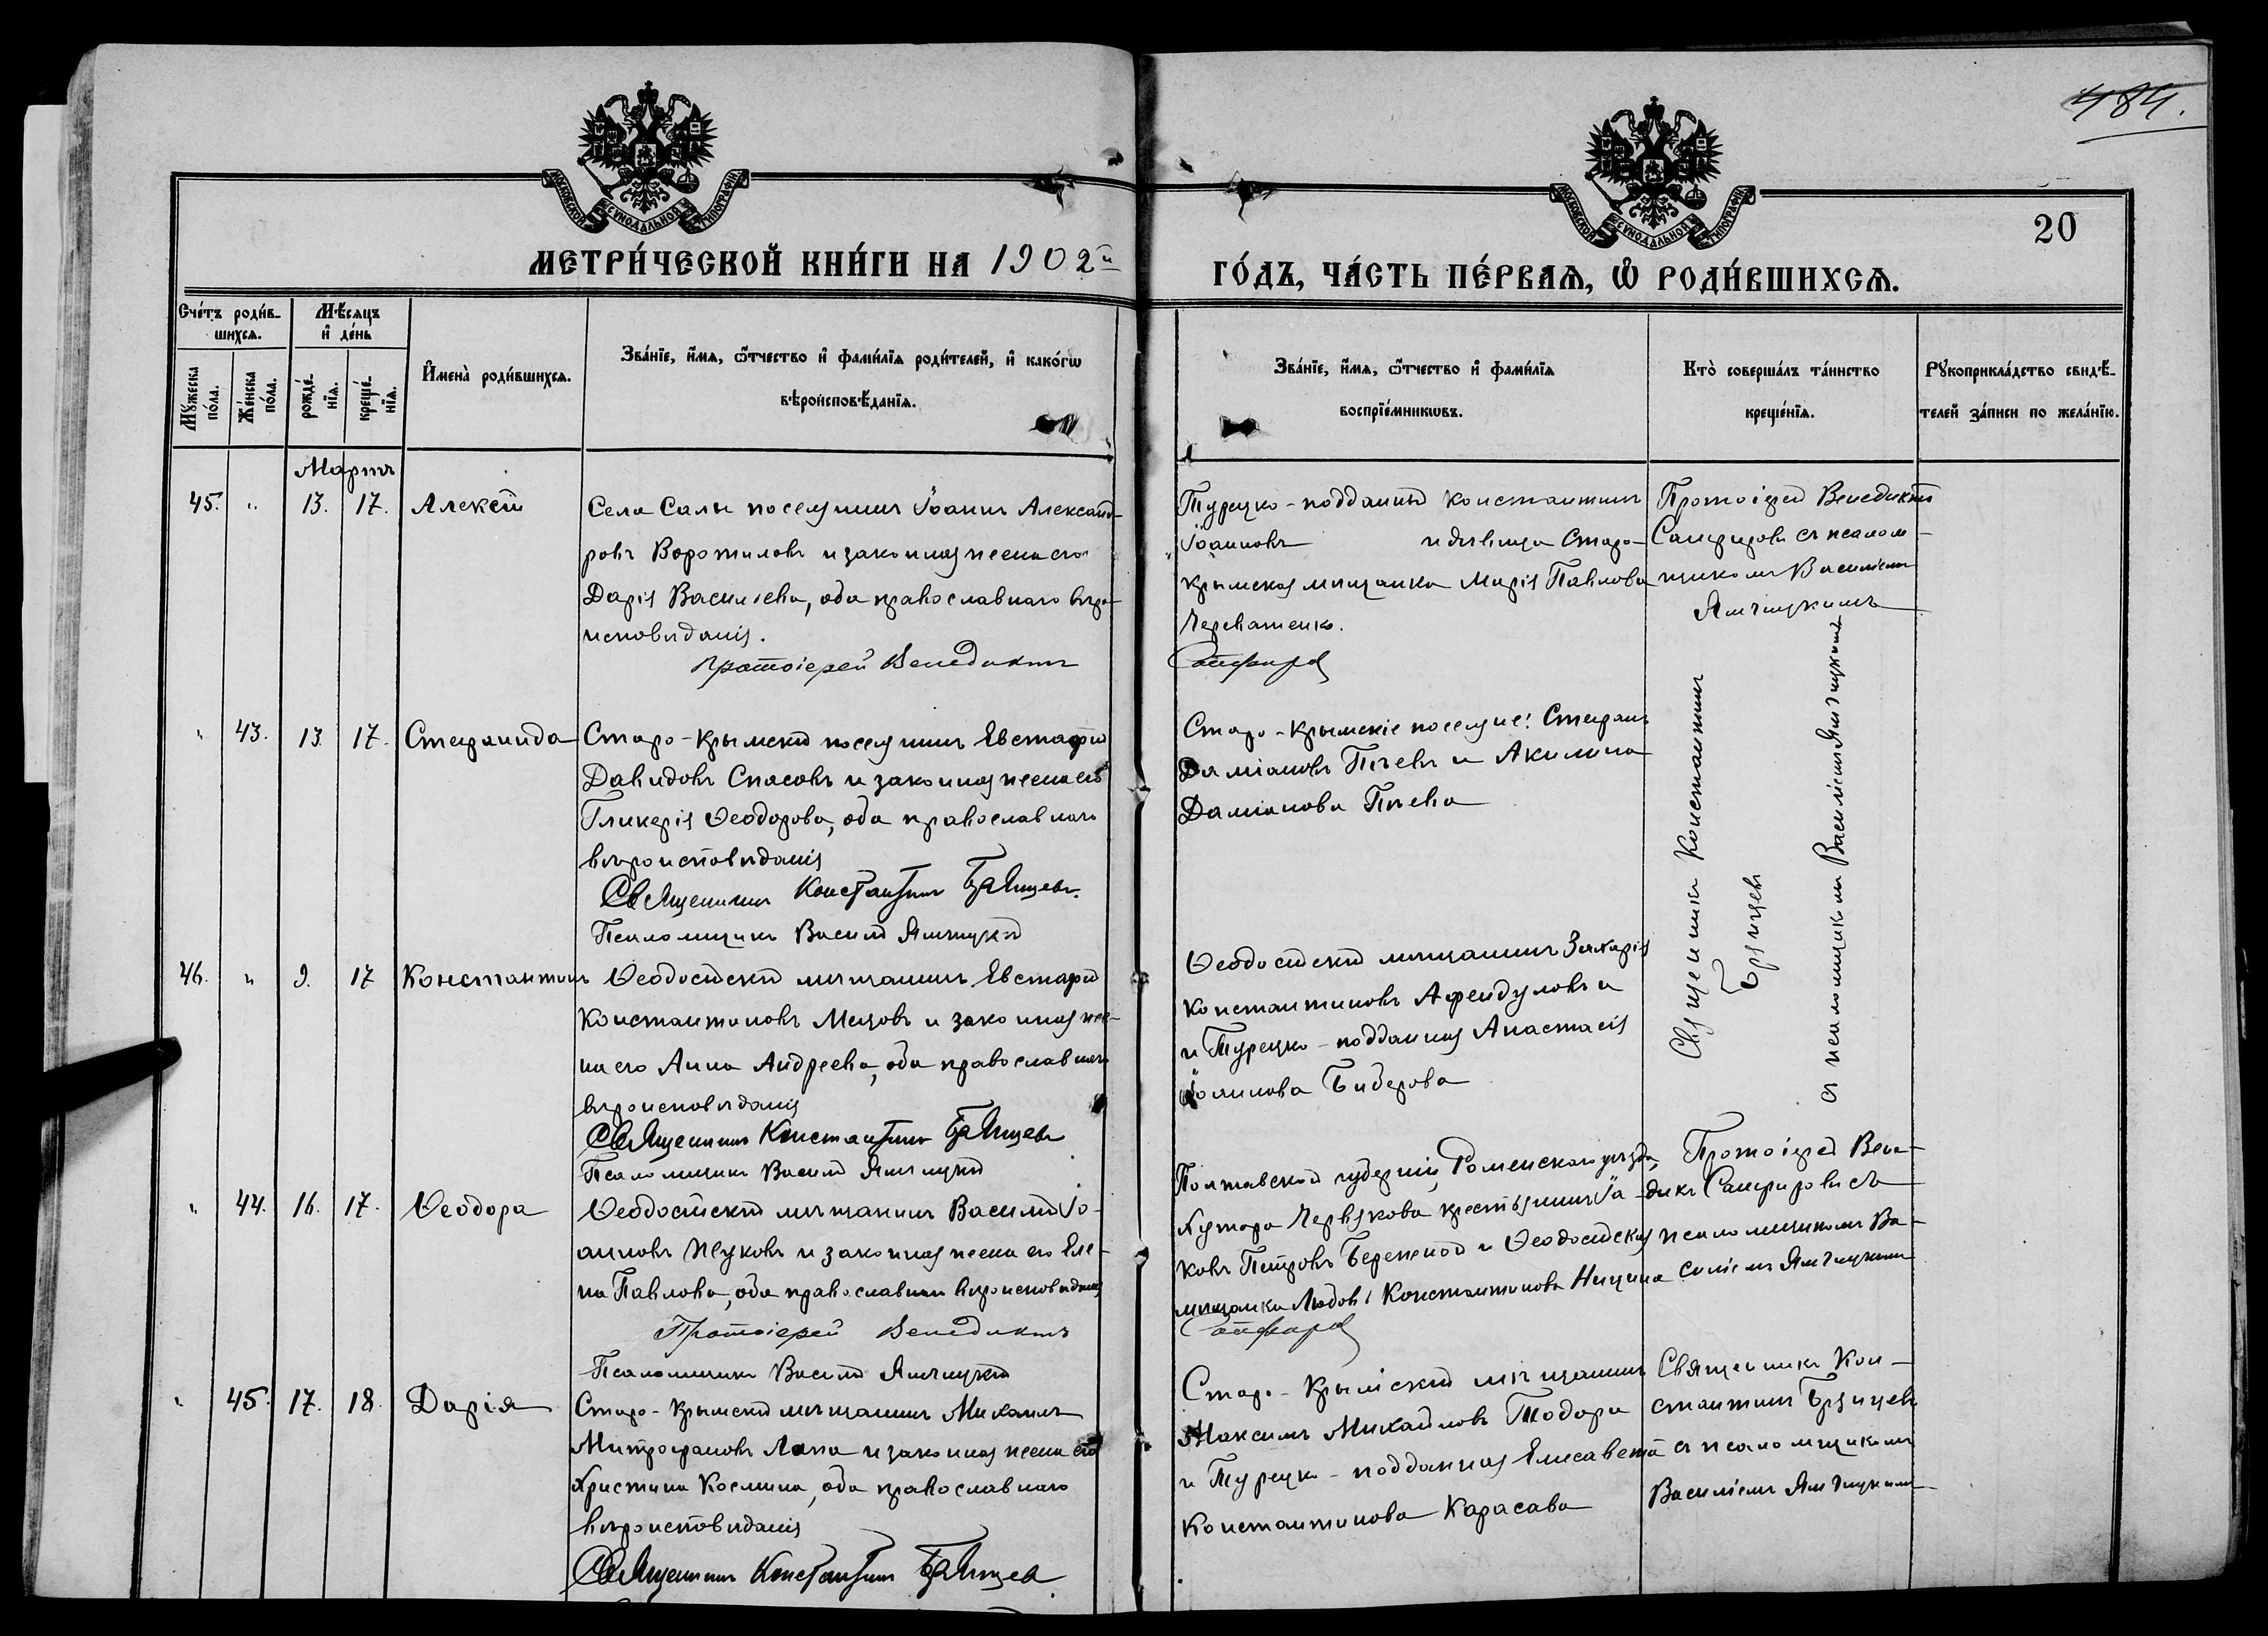 484.
20
МОСКОВСКОЙ СѴНОДАЛЬНОЙ ТИПОГРАФІИ
МОСКОВСКОЙ СѴНОДАЛЬНОЙ ТИПОГРАФІИ
МЕТРИ́ЧЕСКОЙ КНИ́ГИ НА 1902й
ГО́ДЪ, ЧА́СТЬ ПЕ́РВАѦ, Ѽ РОДИ́ВШИХСѦ.
Счéтъ роди́в-
шихсѧ.
Мѣ́сяцъ
и҆ дéнь
Мꙋ́жеска по́ла.
Же́нска по́ла.
рожде́-
нїѧ.
креще́-
нїѧ.
И҆мена̀ роди́вшихсѧ.
Зва́нїе, и҆́мѧ, ѻ҆́тчество и҆ фами́лїѧ роди́телей, и҆ како́гѡ
вѣроисповѣ́данїѧ.
Зва́нїе, и҆́мѧ, ѻ҆́тчество и҆ фами́лїѧ
воспрїе́мникѡвъ.
Кто̀ соверша́лъ та́инство
креще́нїѧ.
Рꙋкоприкла́дство свидѣ́-
телей за́писи по жела́нїю.
Мартъ
45. " 13. 17. Алексѣй
Села Салы поселянинъ Іоаннъ Александ-
ровъ Воротиловъ и законная жена его
Дарія Васильева, оба православнаго вѣро-
исповѣданія.
Протоіерей Венедиктъ
Турецко-подданный Константинъ
Іоанновъ и дѣвица Старо-
крымская мѣщанка Марія Павлова
Череватенко.
Сапфиров
Протоіерей Венедиктъ
Сапфировъ съ псалом-
щикомъ Василіемъ
Ямчицкимъ
" 43. 13. 17. Стефанида
Старо-Крымскій поселянинъ Евстафій
Давидовъ Спасовъ и законная жена его
Гликерія Ѳеодорова, оба православнаго
вѣроисповѣданія
Священникъ Константинъ Брянцевъ.
Псаломщикъ Василій Ямчицкій
Старо-Крымскіе поселяне: Стефанъ
Даміановъ Пчевъ и Акилина
Даміанова Пчева
Священникъ Константинъ
Брянцевъ
съ псаломщикомъ Василіемъ Ямчицкимъ
46. " 9. 17 Константинъ
Ѳеодосійскій мѣщанинъ Евстафій
Константиновъ Мецовъ и законная же-
на его Анна Андреева, оба православнаго
вѣроисповѣданія
Священникъ Константинъ Брянцевъ
Псаломщикъ Василій Ямчицкій
Ѳеодосійскій мѣщанинъ Захарія
Константиновъ Афендуловъ и
и Турецко-подданная Анастасія
Іоаннова Бидерова
" 44. 16. 17. Ѳеодора
Ѳеодосійскій мѣщанинъ Василій Іо-
анновъ Жуковъ и законная жена его Еле-
на Павлова, оба православнаго вѣроисповѣданія
Протоіерей Венедиктъ
Псаломщикъ Василій Ямчицкій
Полтавской губерніи, Роменскаго уѣзда,
Хутора Червякова крестьянинъ Іа-
ковъ Петровъ Бережной и Ѳеодосійская
мѣщанка Любовь Константинова Ницина
Сапфиров
Протоіерей Вене-
диктъ Сапфировъ съ
псаломщикомъ Ва-
силіемъ Ямчицкимъ
" 45. 17. 18. Дарія
Старо-Крымскій мѣщанинъ Михаилъ
Митрофановъ Лапа и законная жена его
Христина Космина, оба православнаго
вѣроисповѣданія
Священникъ Константинъ Брянцев
Старо-Крымскій мѣщанинъ
Максимъ Михайловъ Тодори
и Турецко-подданная Елисавета
Константинова Карасава
Священникъ Кон-
стантинъ Брянцевъ
съ псаломщикомъ
Василіемъ Ямчицкимъ